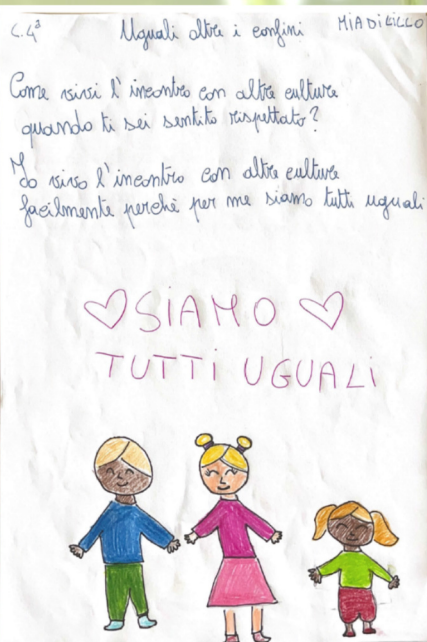 C. 4ª Uguali oltre i confini MIA DILILLO
Come vivi l'incontro con altre culture
quando ti sei sentito rispettato?
Io vivo l'incontro con altre culture
facilmente perchè per me siamo tutti uguali
SIAMO
TUTTI UGUALI